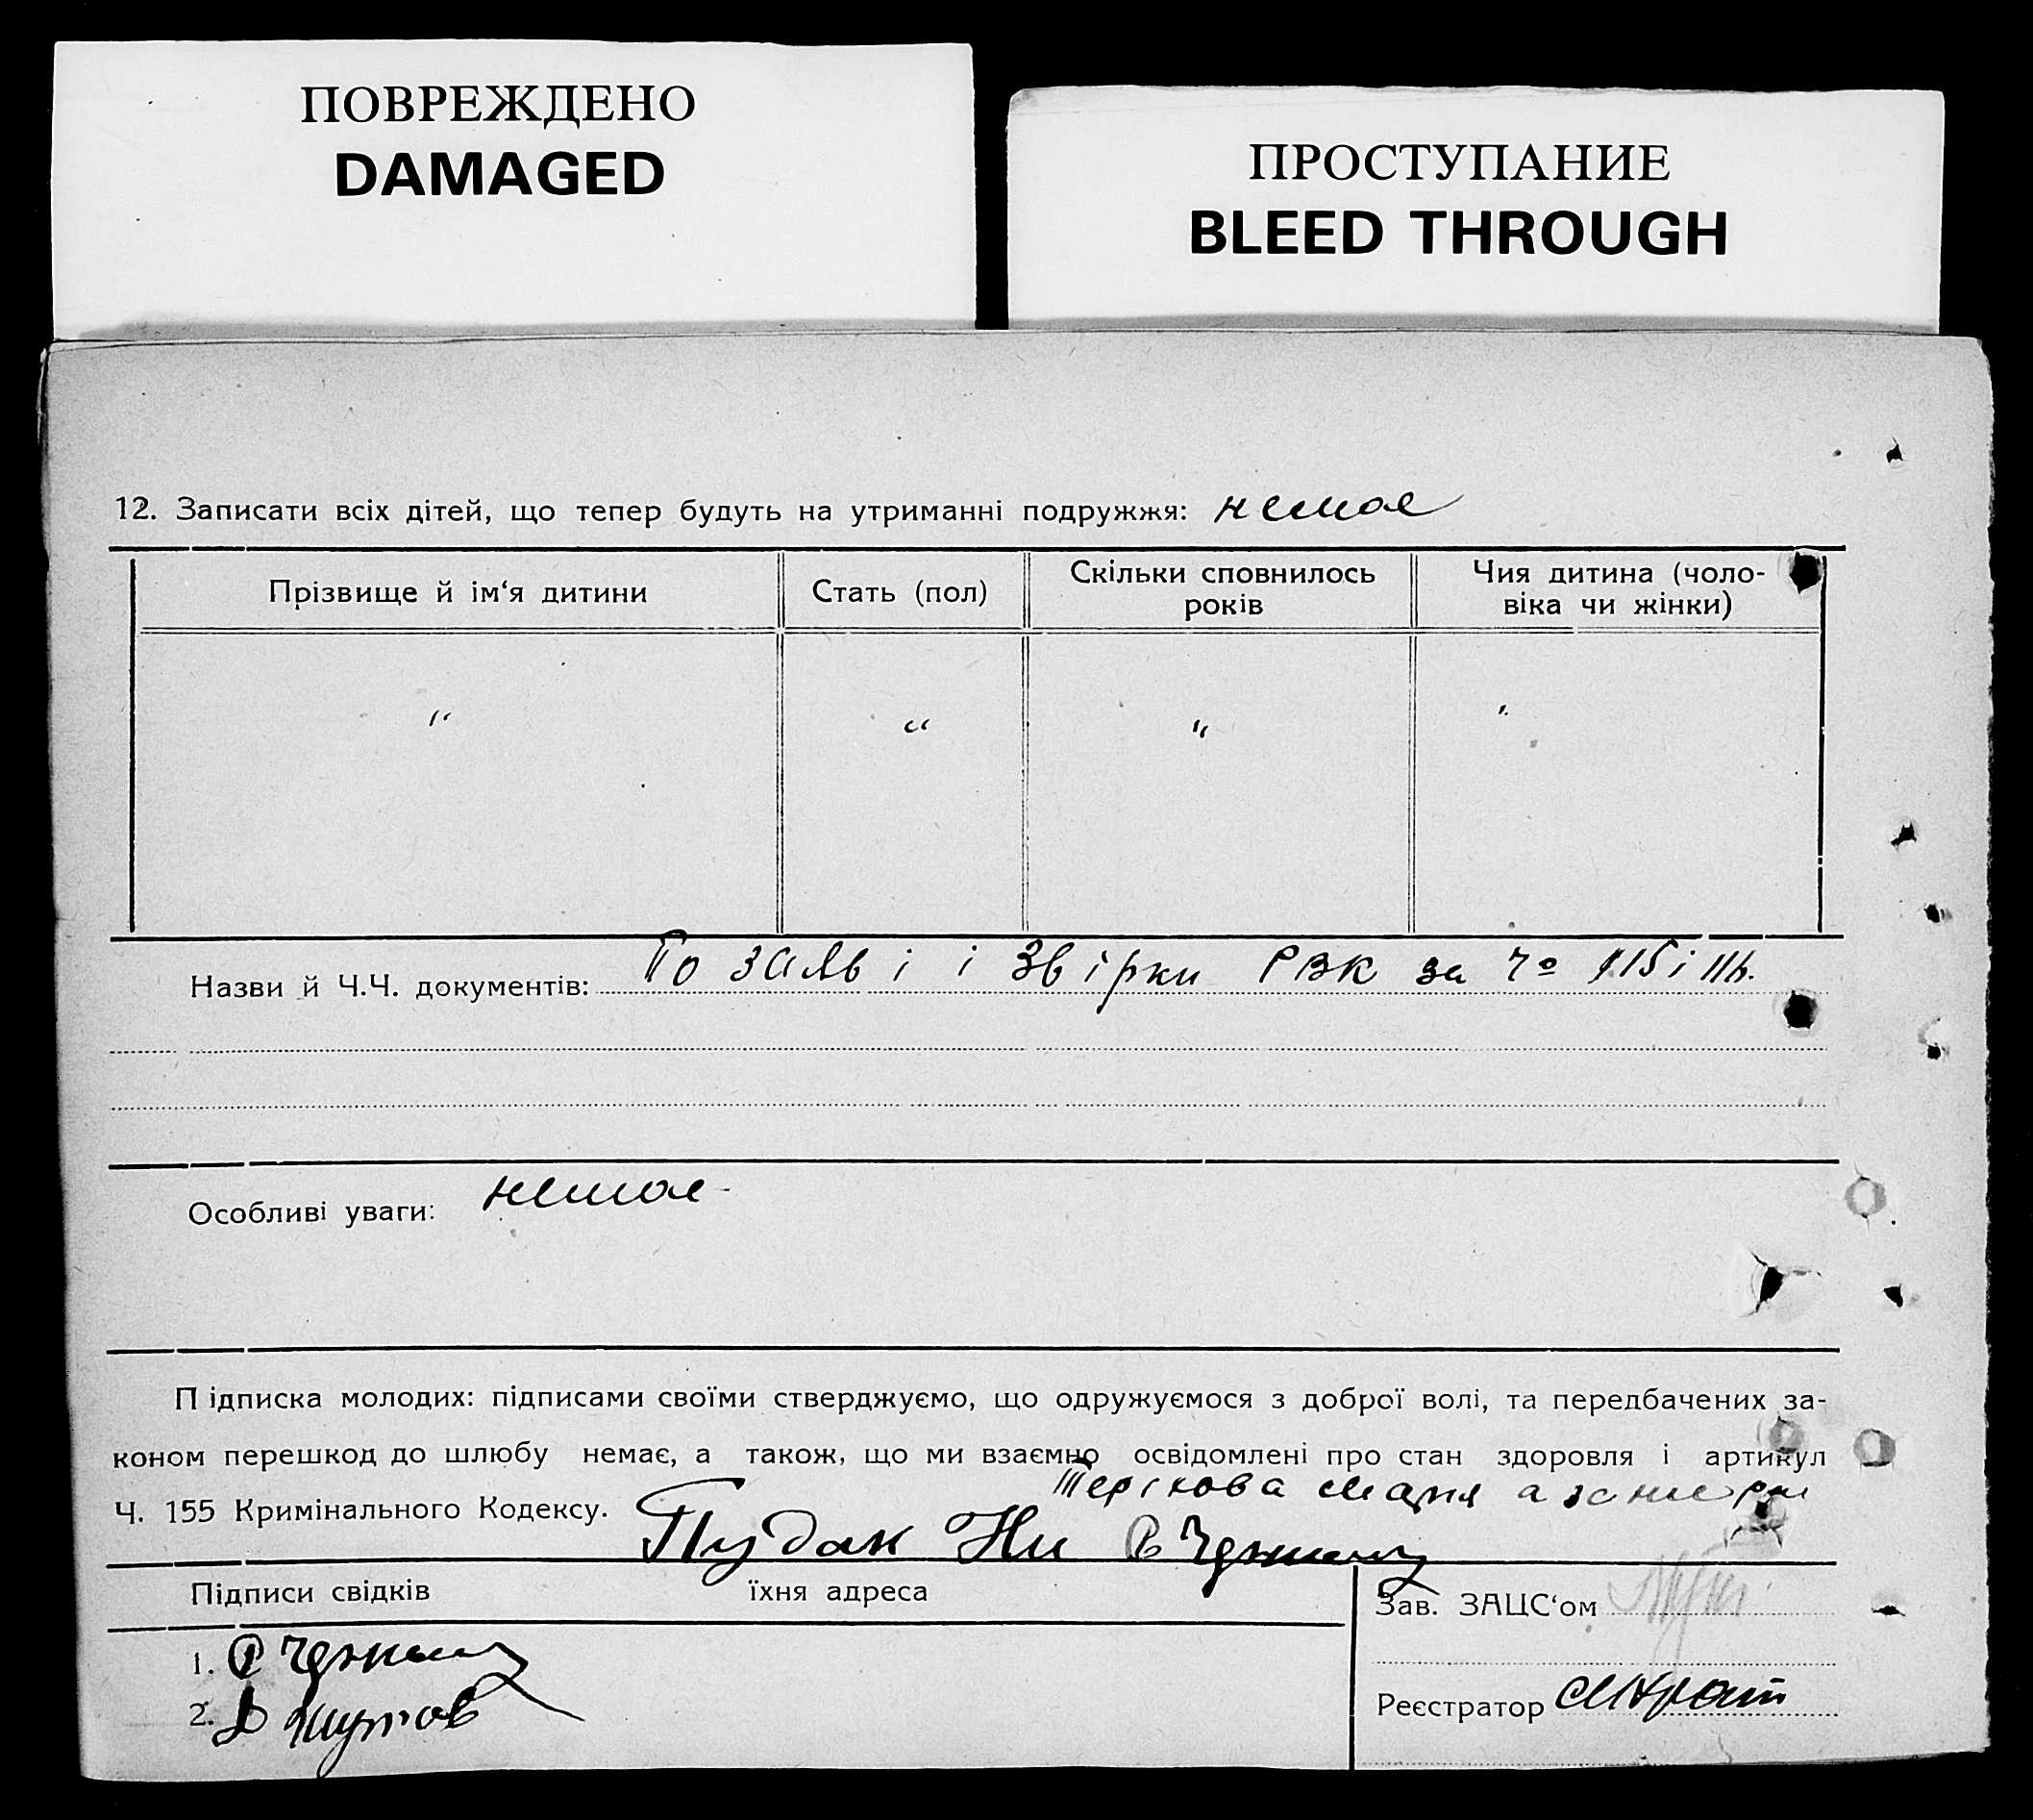 ПОВРЕЖДЕНО
DAMAGED
ПРОСТУПАНИЕ
BLEED THROUGH
12. Записати всіх дітей, що тепер будуть на утриманні подружжя: немає
Прізвище й ім‘я дитини
Стать (пол)
Скільки сповнилось
років
Чия дитина (чоло-
віка чи жінки)
" " " "
Назви й Ч.Ч. документів: По заяві і звірки РВК за
Особливі уваги: немає
Підписка молодих: підписами своїми стверджуємо, що одружуємося з доброї волі, та передбачених за-
коном перешкод до шлюбу немає, а також, що ми взаємно освідомлені про стан здоровля і артикул
Ч. 155 Кримінального Кодексу.
Пудак
Підписи свідків
їхня адреса
Зав. ЗАЦС‘ом
1.
2.
Реєстратор